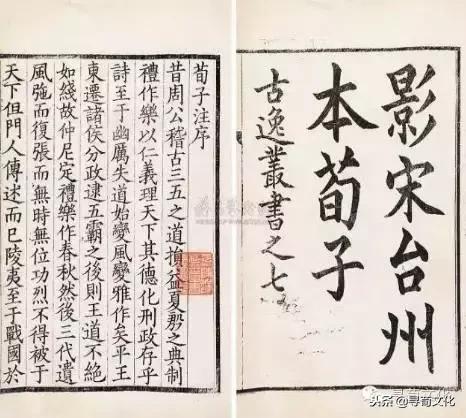 影宋台州
本荀子
古逸叢書之七
荀子注序
昔周公稽古三五之道損益夏殷之典制
禮作樂以仁義理天下其德化刑政存乎
詩至于幽厲失道始變風變雅作矣平王
東遷諸侯分政逮五霸之後則王道不絶
如綫故仲尼定禮樂作春秋然後三代遺
風弛而復張而無時無位功烈不得被于
天下但門人傳述而已陵夷至于戰國於
头条 @寻奇文化